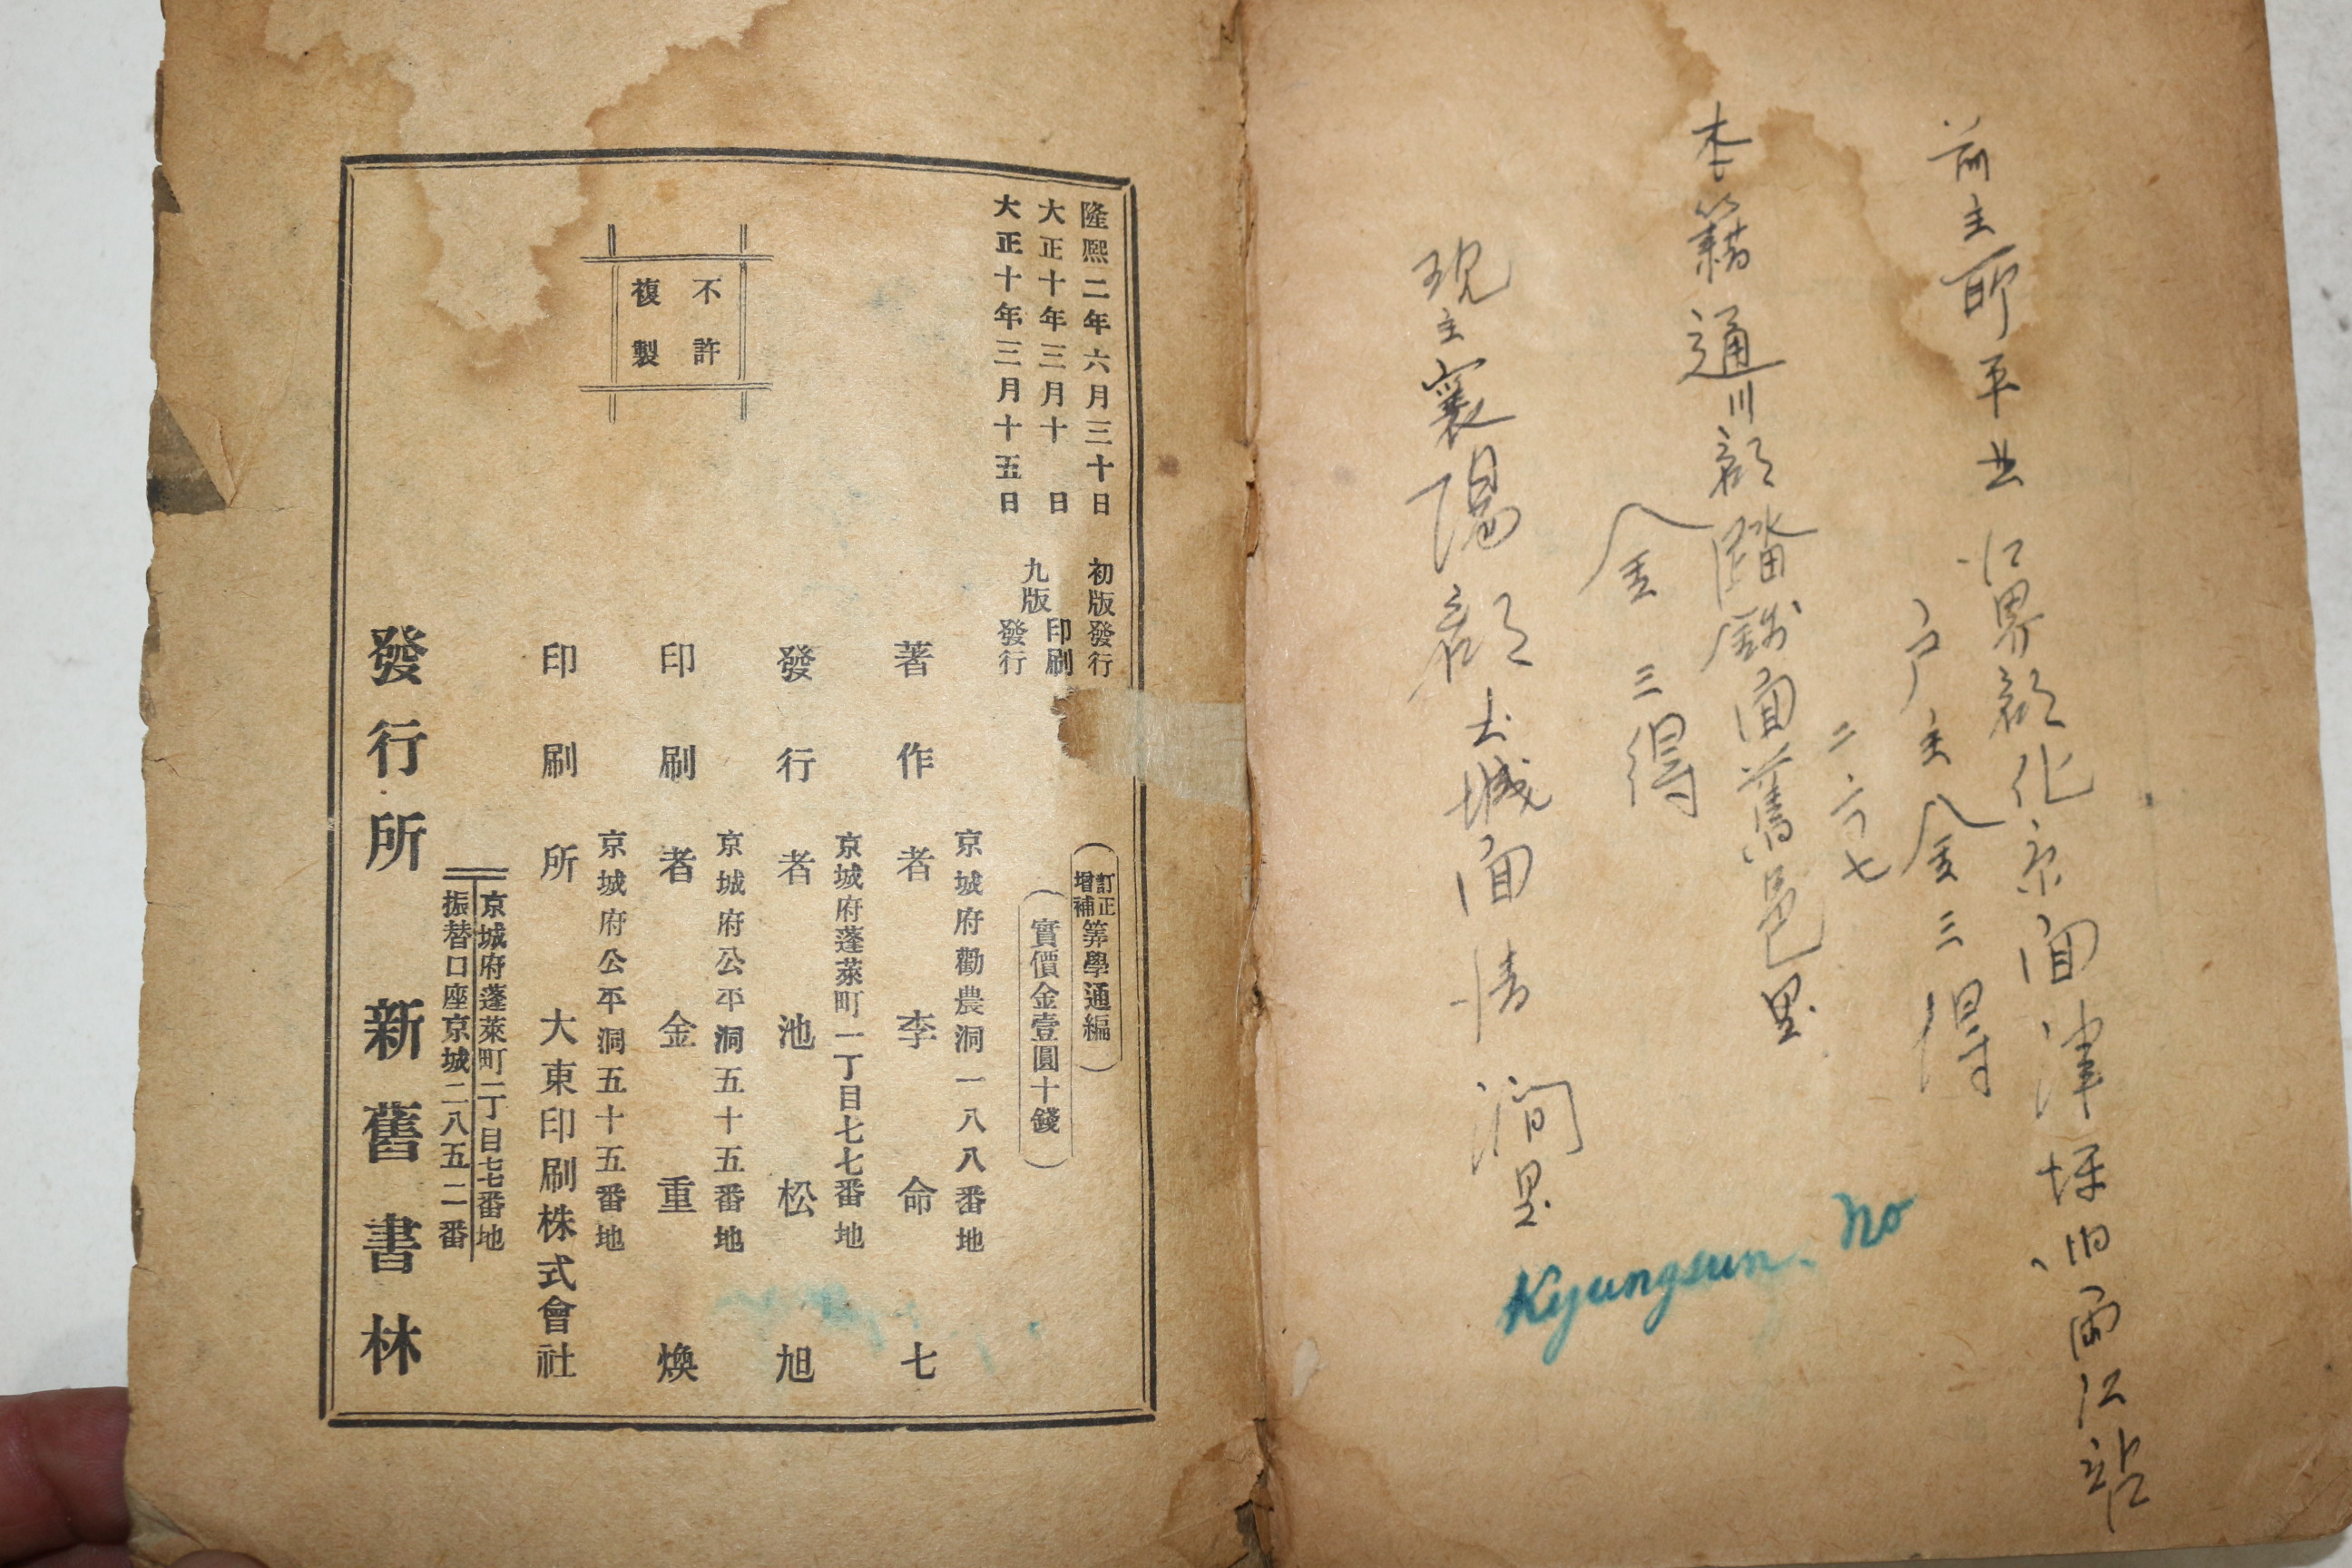 前主所 平北 江界郡 化京面 津坪洞 両江站
戶主 金三得
二六七
本籍 通川郡 踏錢面 舊邑里
金 三得
現主 襄陽郡 土城面 清澗里
Kyungsun. No
隆熙二年六月三十日 初版發行
大正十年三月十日 九版印刷
大正十年三月十五日 發行
(訂正增補 筭學通編)
(實價金壹圓十錢)
不許
複製
京城府勸農洞一八八番地
著作者 李命七
京城府蓬萊町一丁目七七番地
發行者 池松旭
京城府公平洞五十五番地
印刷者 金重煥
京城府公平洞五十五番地
印刷所 大東印刷株式會社
京城府蓬萊町一丁目七七番地
振替口座京城二八五二番
發行所 新舊書林